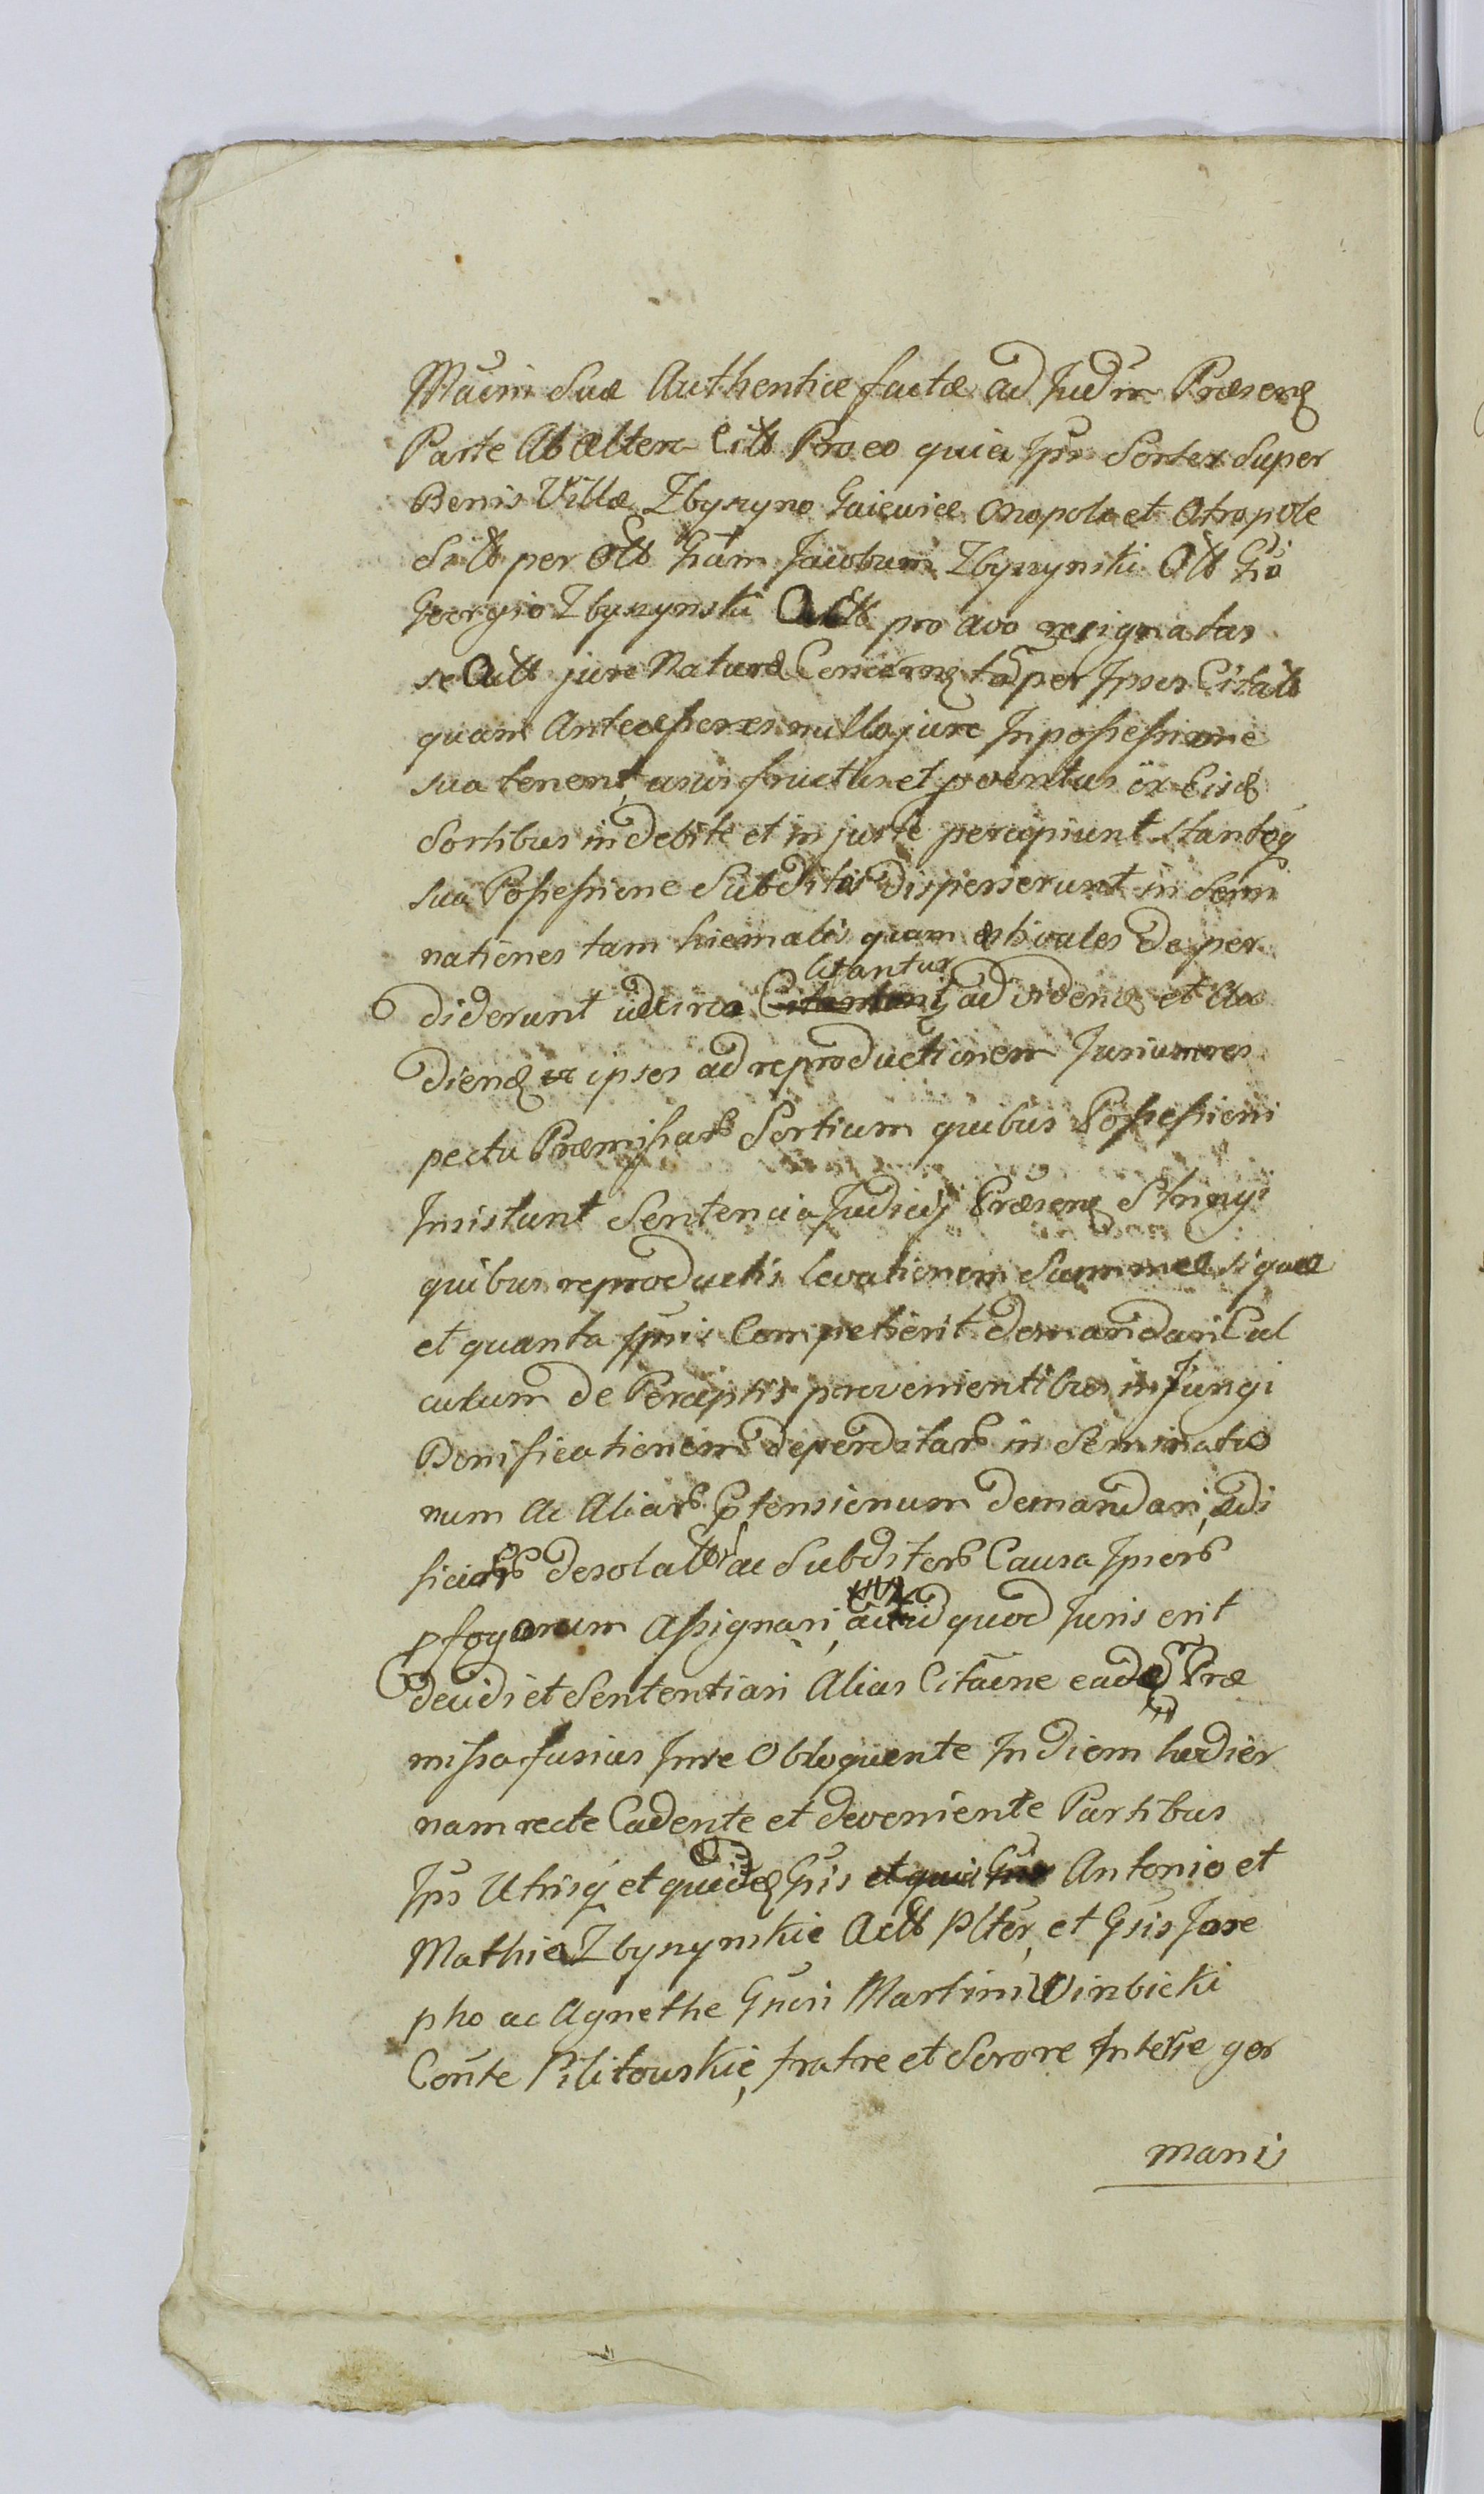 Māeni Suæ Authenticæ factæ ad Judm Præsens
Parte Ab altera Citt Pro eo quia Ipsi Sortes Super
Bonis Villæ Zbyszyno Gaiewice Onopole et Otropole
Sitt per Ott Gsum Jacobum Zbyszynski Ott Gso
Georgio Zbyszynski Actt pro avo resignatas
se Actt jure Naturæ Concernen tā per Ipsos Citatt
quam Antecessores nullo jure In possessione
sua tenent, usus fructus et pventus ex Eisd
Sortibus indebite et injuste percipiunt Stanteq
sua Possessione Subditos disperserunt in Semi
nationes tam hiemales quam æstivales deper
diderunt idcirco Citantur ad videnď et Au
dienď ipsos ad reproductionem Jurium res
pectu Præmissarū Sortium quibus Possessioni
Insistunt Sentencia Judicij Præsens Stringi
quibus reproductis levationem Summæ si quæ
et quanta Ipsis Competierit demandari Cal
culum de Perceptis provenientibus injungi
Bonificationem deperditarū inseminatio
num Ac Aliarū Ptensionum demandari, ædi
ficiorū desolatorū ac Subditorū Causa Ipsorū
pfogorum assignari, id quod Juris erit
decidi et Sententiari Alias Citāone eadē Præ
missa fusius In se Obloquente In diem hodier
nam recte Cadente et deveniente Partibus
Ips Utrisq et quidē Gsis Antonio et
Mathia Zbyszynskie Actt Plter, et Gsis Jose
pho ac Agnethe Gnsi Martini Winbicki
Conte Pilitowskie, fratre et Sorore Inter se ger
manis